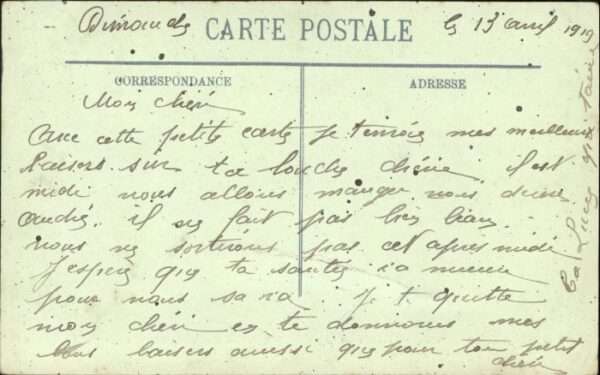 Dimanche
CARTE POSTALE
le 13 avril 1919
CORRESPONDANCE
ADRESSE
Mon chéri
Avec cette petite carte je t'envoie mes meilleurs
baisers sur ta bouche chérie il est
midi nous allons manger nous deux
André. il ne fait pas bien beau
nous ne sortirons pas cet apres midi
J'espère que ta santé va mieux
pour nous sa va. Je te quitte
mon chéri en te donnant mes
bons baisers aussi que pour ton petit
chéri
Ta Lucie